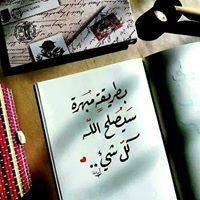 بطريقةٍ مبهرة
سَيُصلح الله
كلّ شيءٍ ..